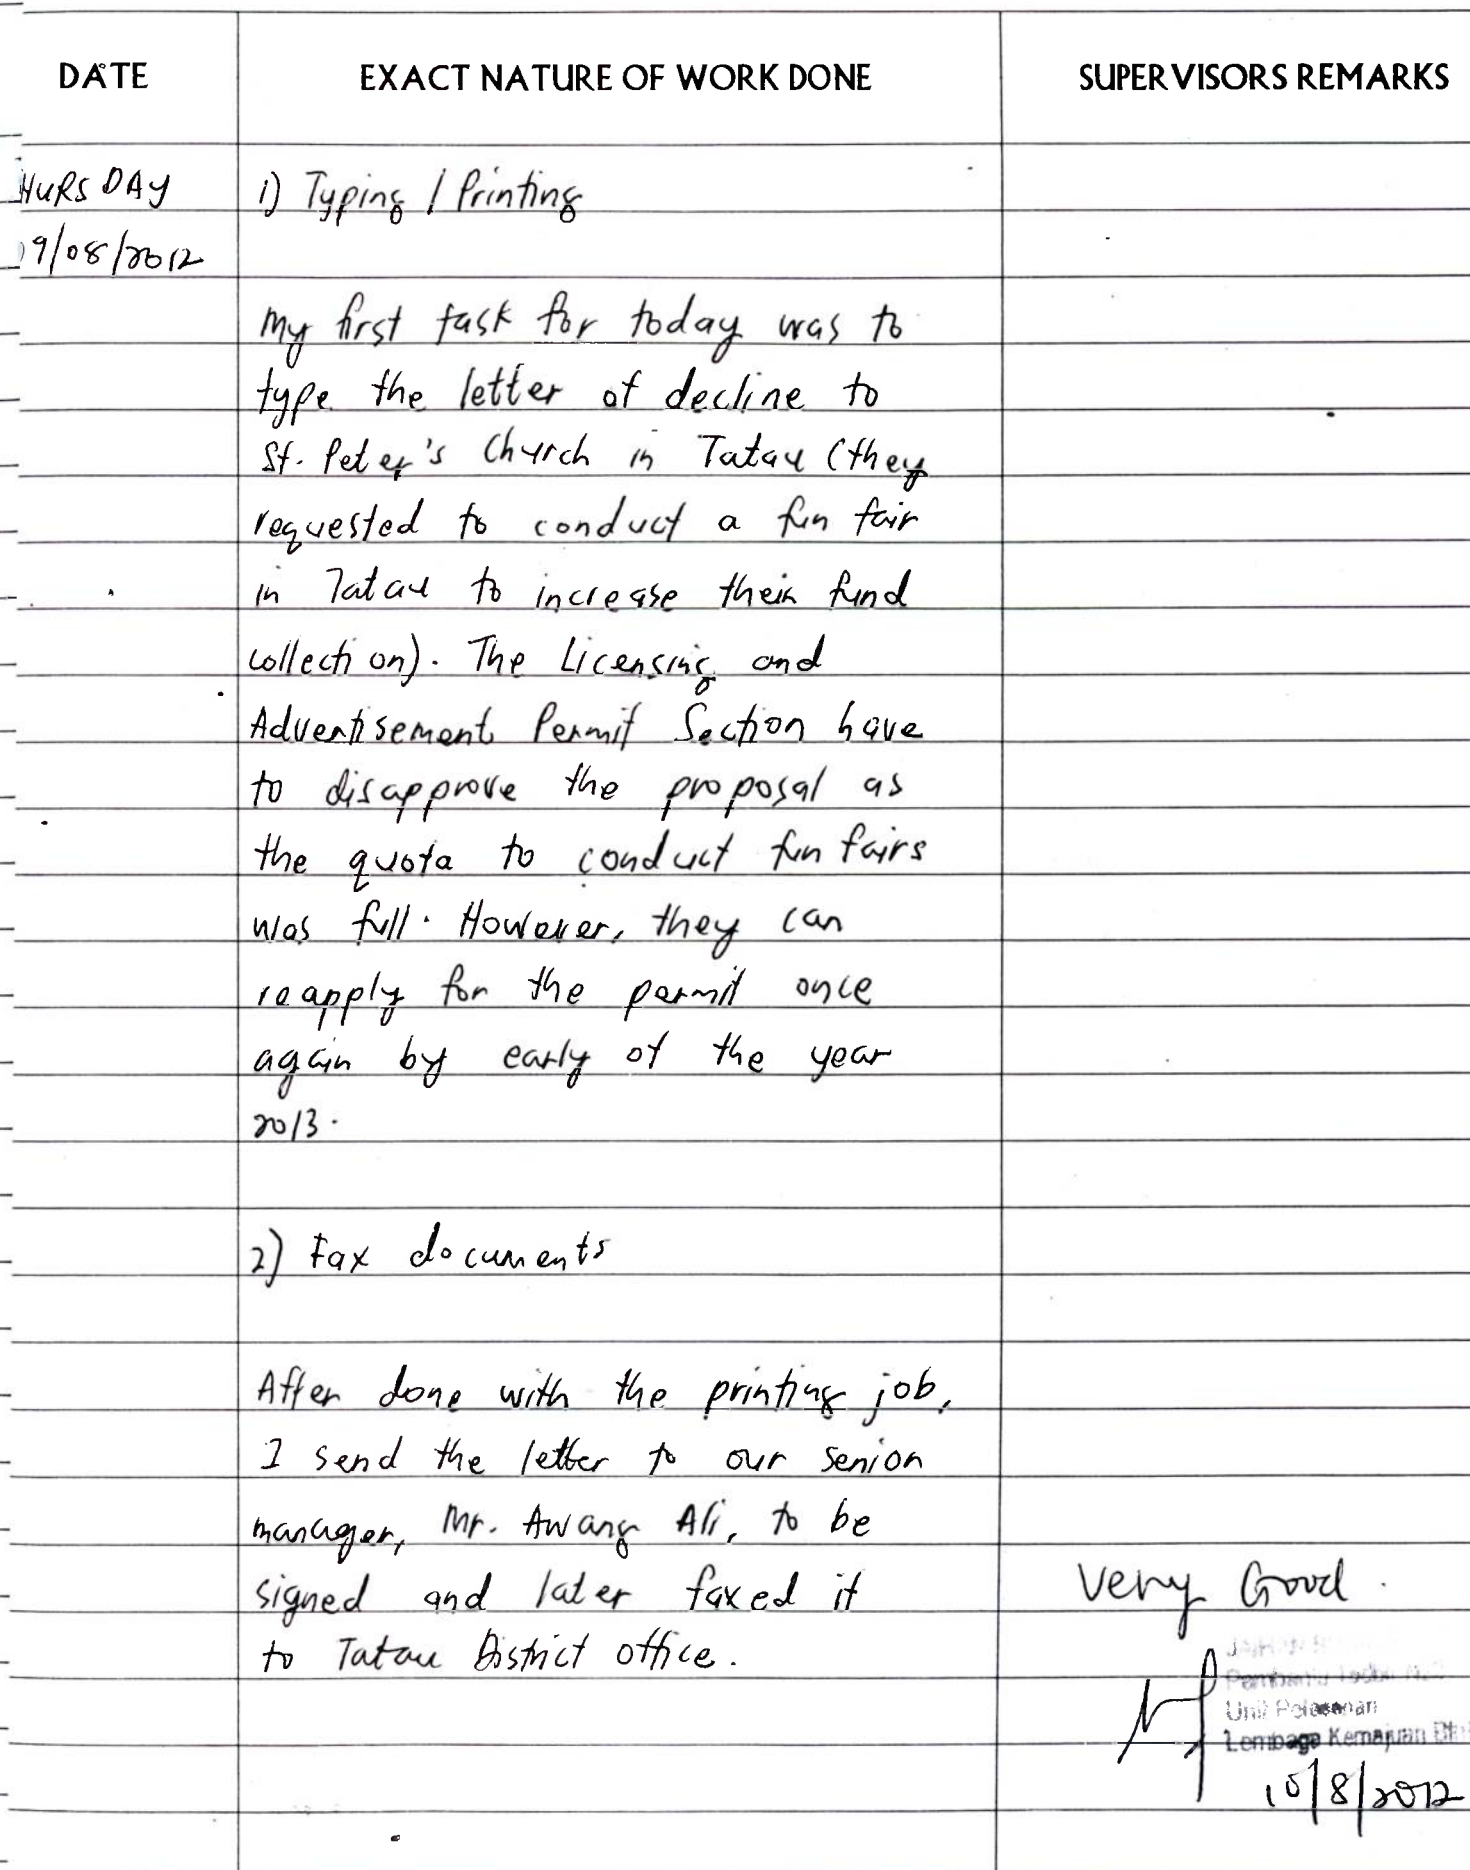 DATE EXACT NATURE OF WORK DONE SUPERVISORS REMARKS
HURSDAY 1) Typing / Printing
9/08/2012
My first task for today was to
type the letter of decline to
St. Peter's Church in Tatau (they
requested to conduct a fun fair
in Tatau to increase their fund
collection). The Licensing and
Advertisement Permit Section have
to disapprove the proposal as
the quota to conduct fun fairs
was full. However, they can
reapply for the permit once
again by early of the year
2013.
2) Fax documents
After done with the printing job,
I send the letter to our senior
manager, Mr. Awang Ali, to be
signed and later faxed it
to Tatau District office.
Very Good.
Unit Pelesenan
Lembaga Kemajuan
10/8/2012